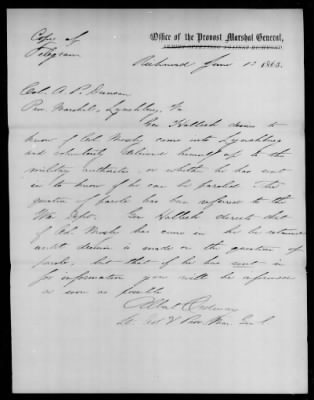 Copy of
Telegram
Office of the Provost Marshal General,
Richmond June 1865.
Col. A. P. Duncan
Pro. Marshal, Lynchburg, Va
Gen Halleck desires to
know if Col Mosby came into Lynchburg
and voluntarily delivered himself up to the
military authorities, or whether he has sent
in to know if he can be paroled. The
question of parole has been referred to the
War Dept. Gen Halleck directs that
if Col Mosby has come in he be retained
until decision is made on the question of
parole, but that if he has sent in
for information you will be informed
as soon as possible
Albert Ordway
Lt. Col &amp; Prov. Mar. Gen'l